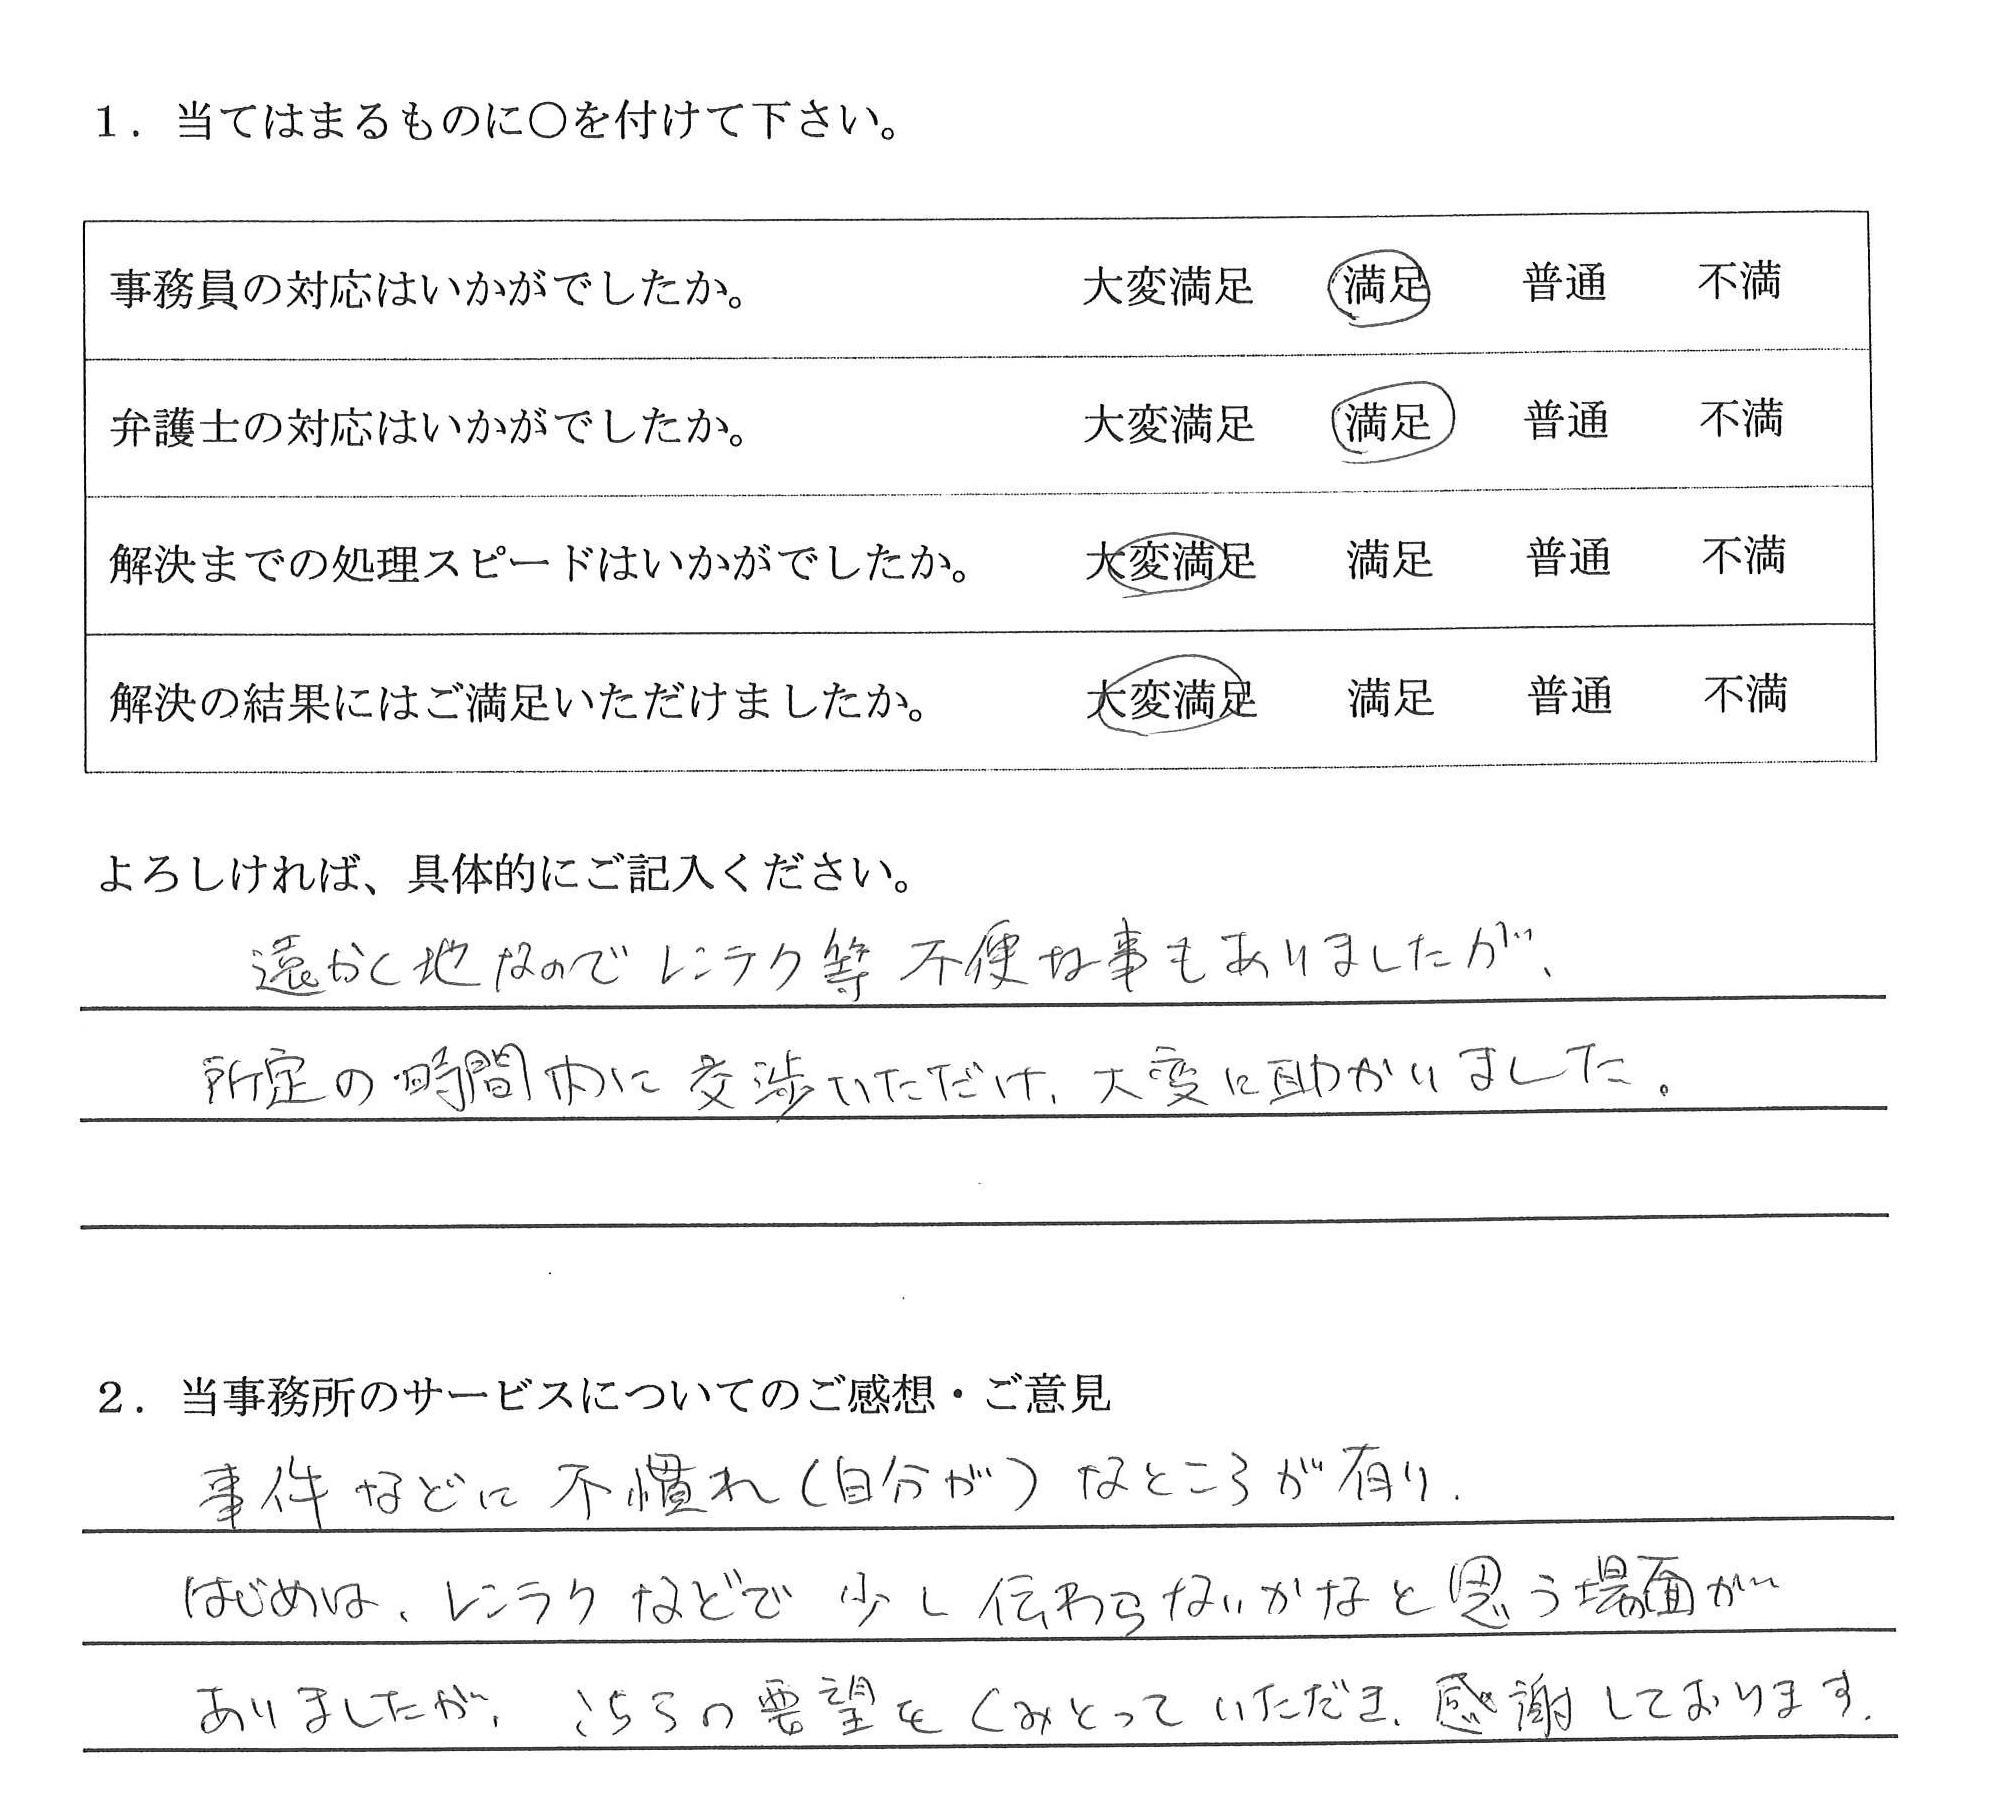 1．当てはまるものに〇を付けて下さい。
事務員の対応はいかがでしたか。 大変満足 満足 普通 不満
弁護士の対応はいかがでしたか。 大変満足 満足 普通 不満
解決までの処理スピードはいかがでしたか。 大変満足 満足 普通 不満
解決の結果にはご満足いただけましたか。 大変満足 満足 普通 不満
よろしければ、具体的にご記入ください。
遠かく地なのでレンラク等不便な事もありましたが、
所定の時間内に交渉いただけ、大変に助かりました。
2．当事務所のサービスについてのご感想・ご意見
事件などに不慣れ（自分が）なところが有り、
はじめは、レンラクなどで少し伝わらないかなと思う場面が
ありましたが、こちらの要望をくみとっていただき、感謝しております。